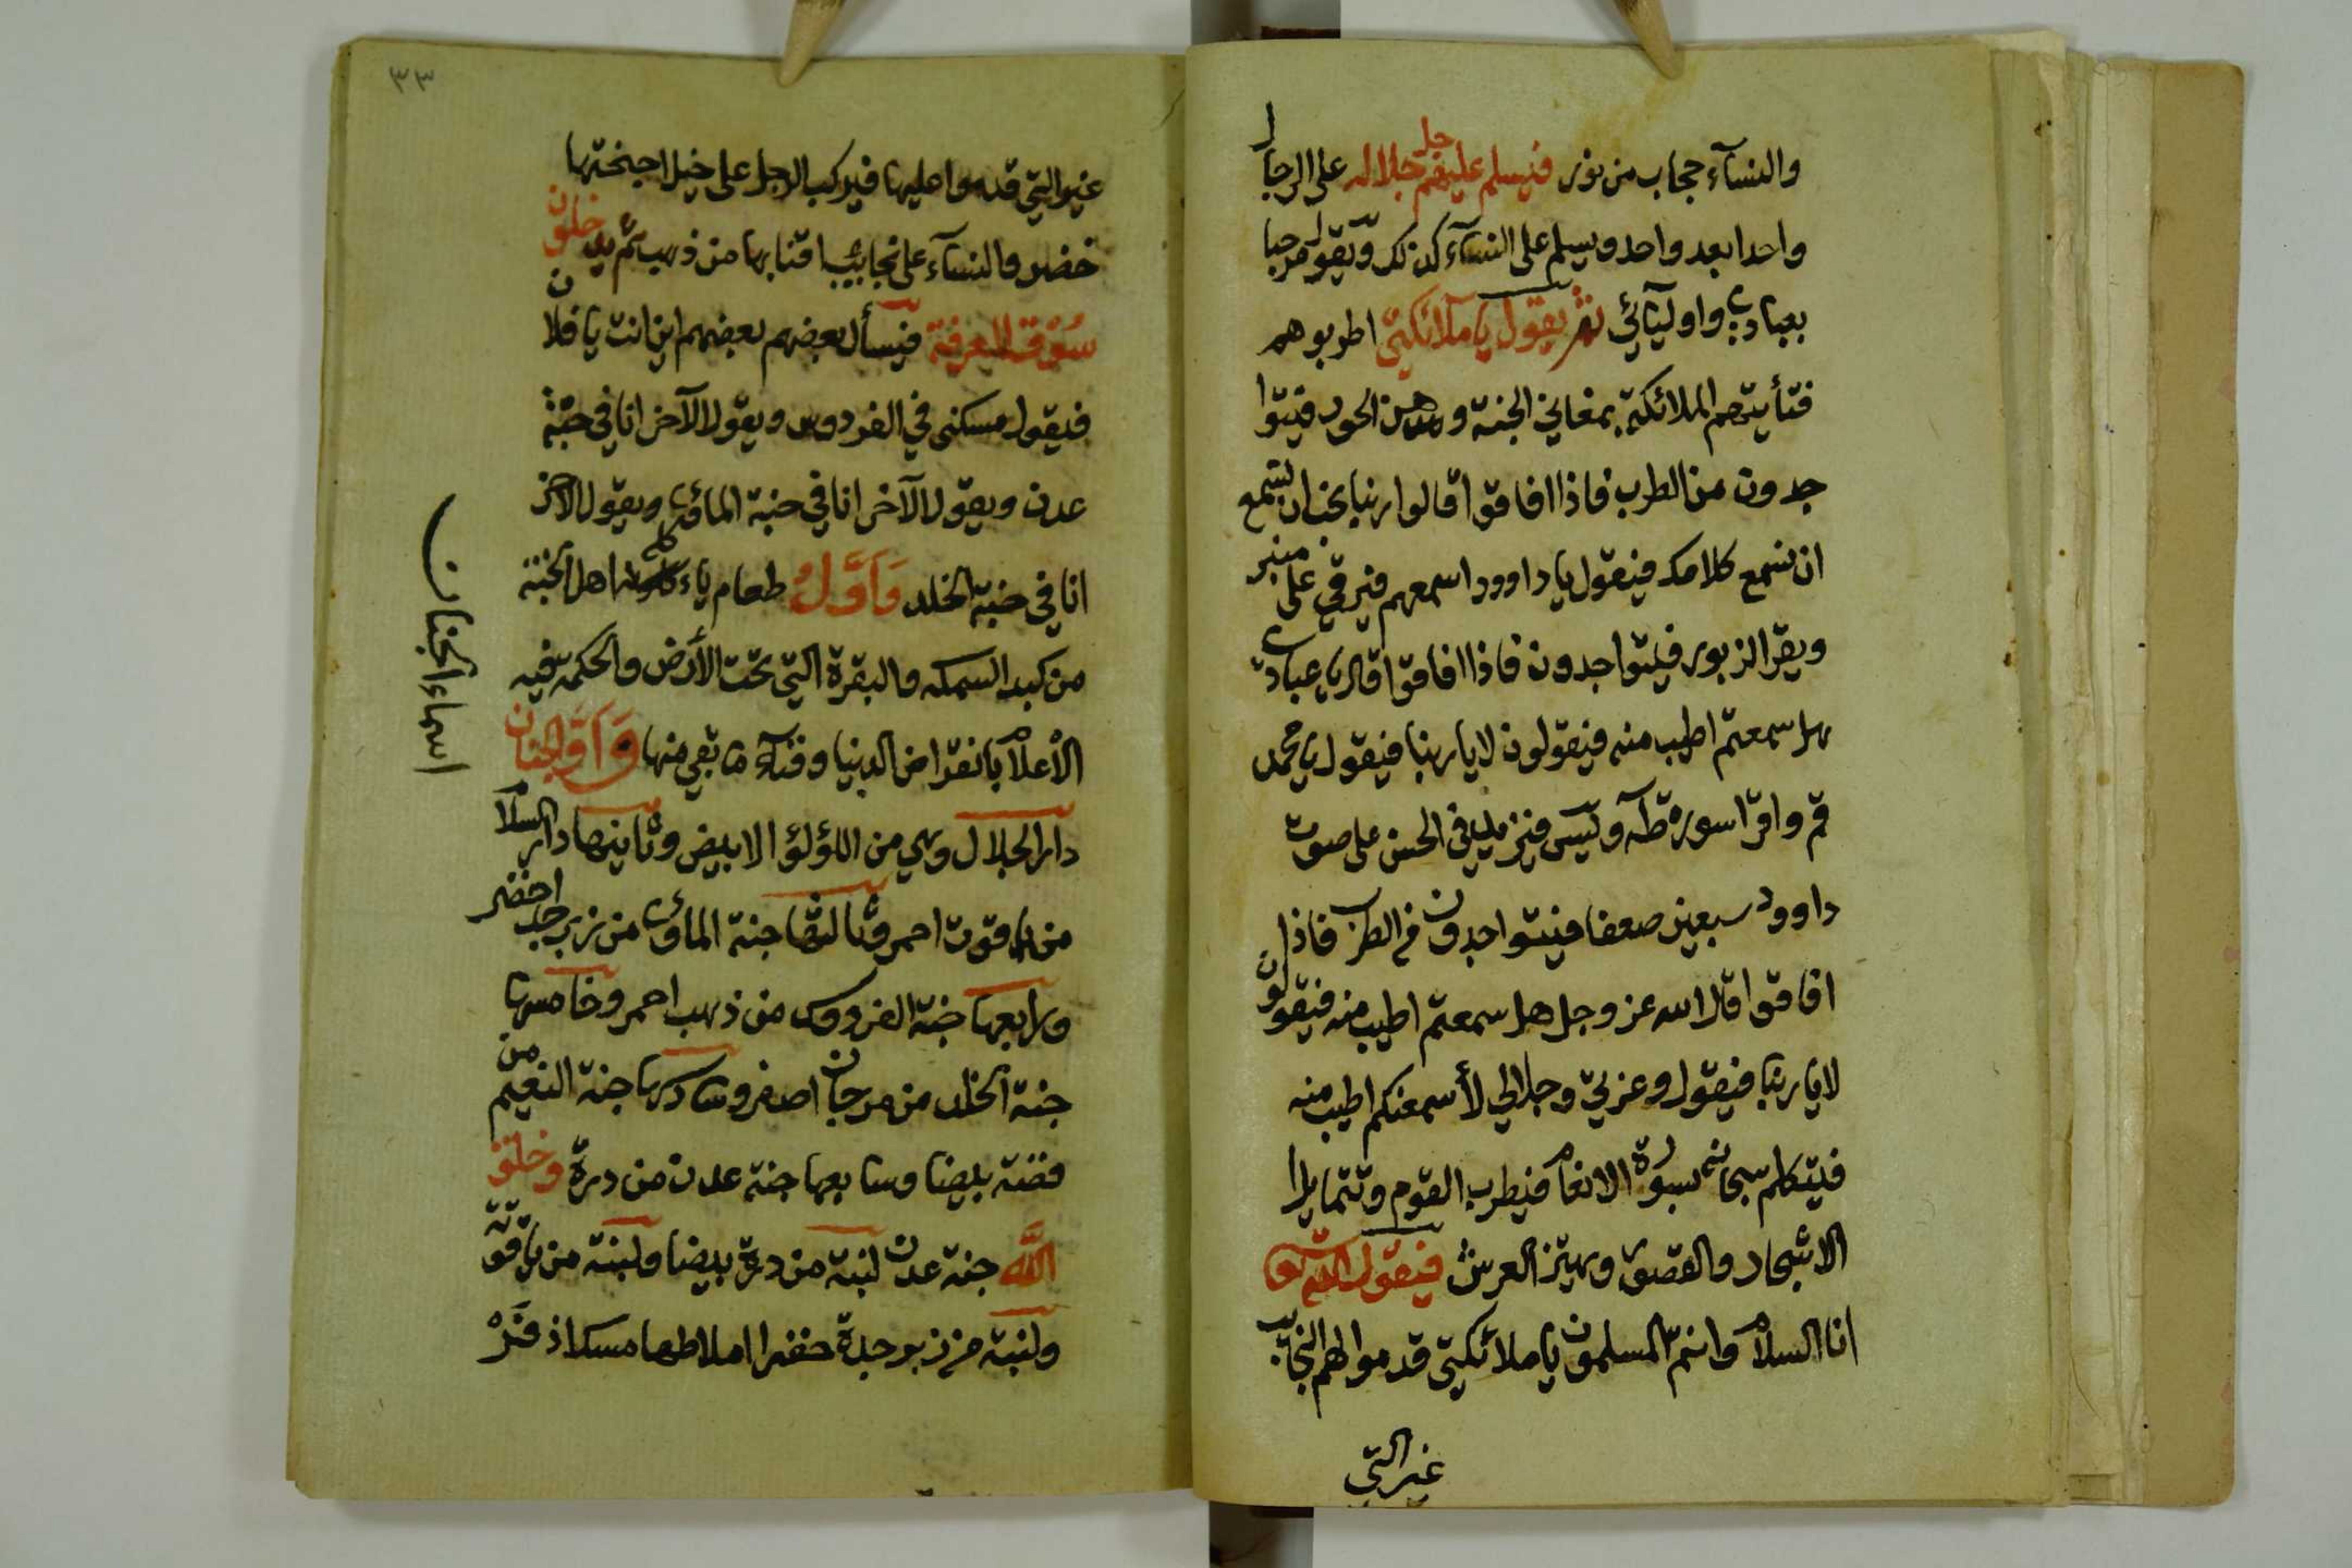 والنسآء حجاب من نور فيسلم عليهم جل جلاله على الرجال
واحدا بعد واحد ويسلم على النسآء كذلك ويقول مرحبا
بعبادي واوليآئي ثم يقول يا ملائكتي اطربوهم
فتأتيهم الملائكة بمغاني الجنة وهن الحور فيتوا
جدون من الطرب فاذا افاقوا قالوا ربنا نحب ان نسمع
ان نسمع كلامك فيقول يا داوود اسمعهم فيرقى على منبر
ويقرا الزبور فيتواجدون فاذا افاقوا قال يا عبادي
هل سمعتم اطيب منه فيقولون لا يا ربنا فيقول يا محمد
قم واقرا سورة طه ويس فيزيد في الحسن على صوت
داوود سبعين ضعفا فيتواجدون من الطرب فاذا
افاقوا قال الله عز وجل هل سمعتم اطيب منه فيقولون
لا يا ربنا فيقول وعزتي وجلالي لأسمعنكم اطيب منه
فيتكلم سبحانه بسورة الانعام فيطرب القوم وتتمايل
الاشجار والقصور ويهتز العرش فيقول الله تعالى
انا السلام وانتم المسلمون يا ملائكتي قدموا لهم النجائب
غير التي
٣٣
غير التي قدموا عليها فيركب الرجل على خيل اجنحتها
خضر والنسآء على نجائب اقتابها من ذهب ثم يدخلون
سوق المعرفة فيسأل بعضهم بعضهم اين انت يا فلان
فيقول مسكني في الفردوس ويقول الآخر انا في جنة
عدن ويقول الآخر انا في جنة المأوى ويقول الآخر
انا في جنة الخلد وَاَوَّلُ طعام ياءكله اهل الجنة
من كبد السمكه والبقرة التي تحت الأرض والحكمة فيه
الأعلام بانقراض الدنيا وفنآء ما بقي منها واول الجنان
دار الجلال وهي من اللؤلؤ الابيض وثانيها دار السلام
من ياقوت احمر وثالثها جنة المأوى من زبرجد اخضر
ورابعها جنة الفردوس من ذهب احمر وخامسها
جنة الخلد من مرجان اصفر وسادسها جنة النعيم من
فضة بيضا وسابعها جنة عدن من درة وخلق
الله جنة عدن لبنة من درة بيضا ولبنة من ياقوتة
ولبنة من زبرجدة خضرا املاطها مسك اذفر
اسماء الجنان